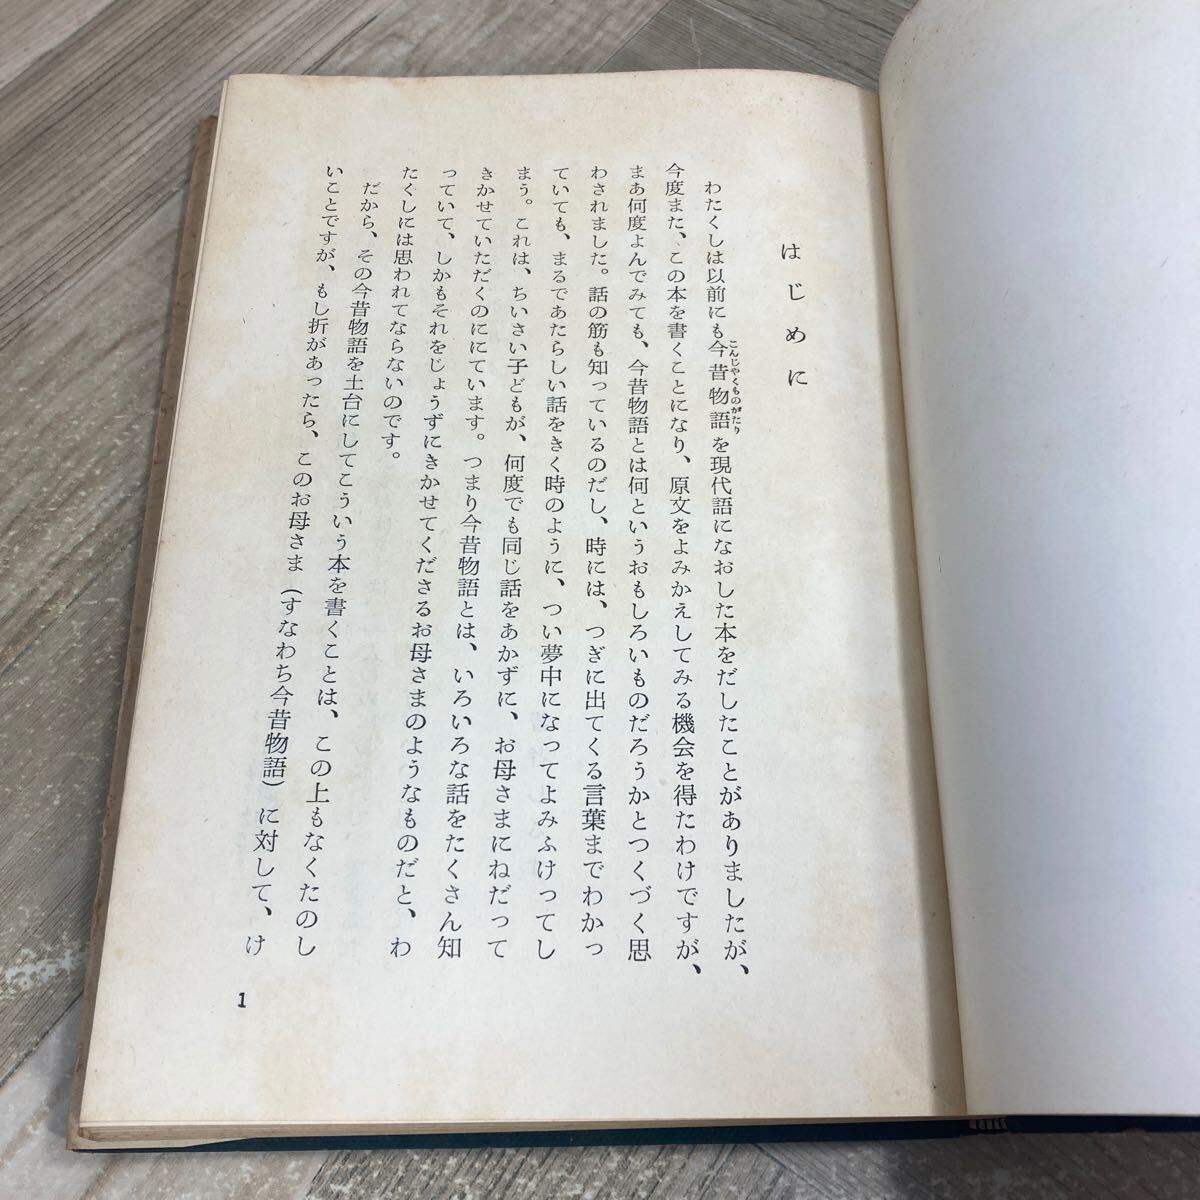 はじめに
わたくしは以前にも今昔物語を現代語になおした本をだしたことがありましたが、
こんじやくものがたり
今度また、この本を書くことになり、原文をよみかえしてみる機会を得たわけですが、
まあ何度よんでみても、今昔物語とは何というおもしろいものだろうかとつくづく思
わされました。話の筋も知っているのだし、時には、つぎに出てくる言葉までわかっ
ていても、まるであたらしい話をきく時のように、つい夢中になってよみふけってし
まう。これは、ちいさい子どもが、何度でも同じ話をあかずに、お母さまにねだって
きかせていただくのににています。つまり今昔物語とは、いろいろな話をたくさん知
っていて、しかもそれをじょうずにきかせてくださるお母さまのようなものだと、わ
たくしには思われてならないのです。
だから、その今昔物語を土台にしてこういう本を書くことは、この上もなくたのし
いことですが、もし折があったら、このお母さま(すなわち今昔物語)に対して、け
1